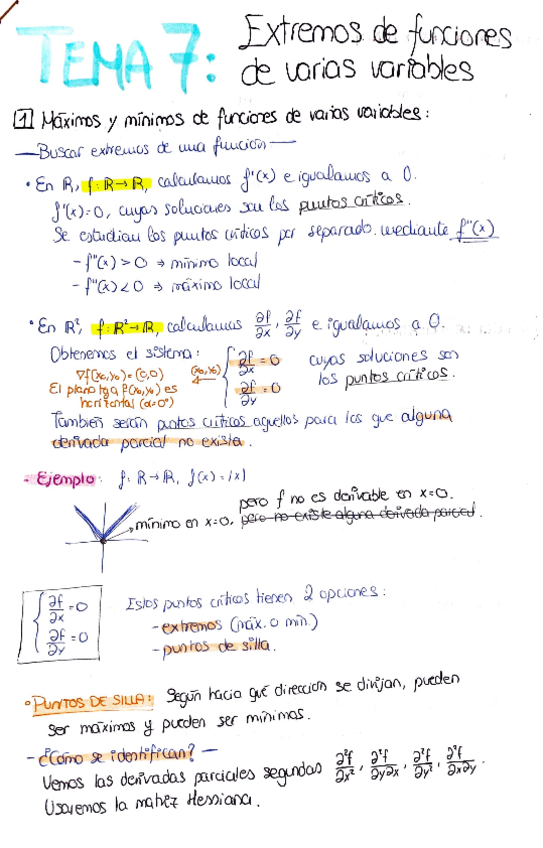 TEMA 7: Extremos de funciones
de varias variables
1 Máximos y mínimos de funciones de varias variables:
— Buscar extremos de una función —
• En ℝ, f: ℝ→ℝ, calculamos f'(x) e igualamos a 0.
f'(x)=0, cuyas soluciones son los puntos críticos.
Se estudian los puntos críticos por separado mediante f''(x)
- f''(x) > 0 ⇒ mínimo local
- f''(x) < 0 ⇒ máximo local
• En ℝ², f: ℝ²→ℝ, calculamos ∂f/∂x, ∂f/∂y e igualamos a 0.
Obtenemos el sistema: { ∂f/∂x = 0 cuyas soluciones son
∂f/∂y = 0 los puntos críticos.
(x₀,y₀) ←
∇f(x₀,y₀)=(0,0)
El plano tg a f(x₀,y₀) es
horizontal (α=0°)
También serán puntos críticos aquellos para los que alguna
derivada parcial no exista.
- Ejemplo: f: ℝ→ℝ, f(x)=|x|
mínimo en x=0, pero f no es derivable en x=0.
pero no existe alguna derivada parcial.
{ ∂f/∂x = 0
∂f/∂y = 0
Estos puntos críticos tienen 2 opciones:
- extremos (máx. o mín.)
- puntos de silla.
• PUNTOS DE SILLA: Según hacia qué dirección se dirijan, pueden
ser máximos y pueden ser mínimos.
- ¿Cómo se identifican? -
Vemos las derivadas parciales segundas ∂²f/∂x², ∂²f/∂y∂x, ∂²f/∂y², ∂²f/∂x∂y.
Usaremos la matriz Hessiana.